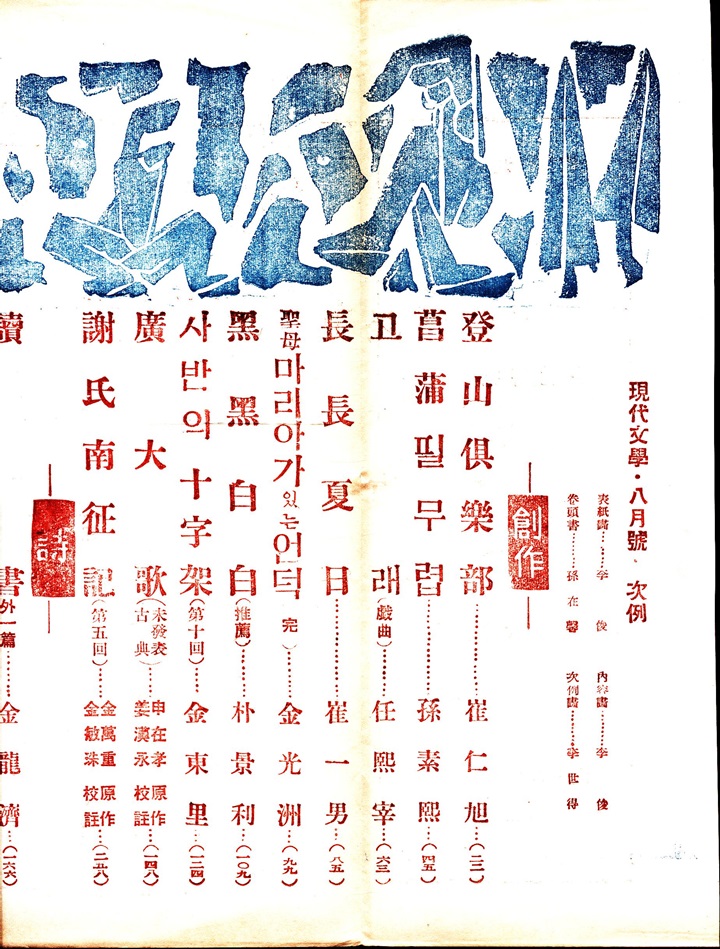 現代文學・八月號・次例
表紙畵……李俊
內容畵………李俊
卷頭書………孫在馨
次例畵………李世得
創作
登山俱樂部………崔仁旭…(二二)
菖蒲필무렵………孫素熙…(四五)
고래(戱曲)…任熙宰…(六三)
長長夏日………崔一男…(八五)
聖母마리아가있는언덕(完)……金光洲…(九九)
黑黑白白(推薦)……朴景利…(一〇九)
사반의十字架(第十回)……金東里…(一二四)
廣大歌(未發表古典)……申在孝原作 姜漢永校註…(一四八)
謝氏南征記(第五回)……金萬重原作 金敏珠校註…(二五八)
詩
讀書外一篇……金龍濟…(一六六)